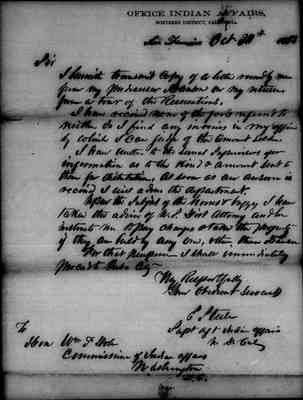 OFFICE INDIAN AFFAIRS,
NORTHERN DISTRICT, CALIFORNIA.
San Francisco Oct 20th
Sir
I herewith transmit Copy of a letter recently
from my predecessor Hanson on my return
from a tour of the Reservations.
I have received none of the goods referred to
neither do I find any invoices in my office
by which I can judge of the amount
I have written to
information as to the kind & amount sent to
them for distribution, as soon as an answer is
received I will advise the department.
Upon the subject of the Horses & buggy I have
taken the advice of U.S. Dist Attorney and he
instructs me to pay charges & take the property
if they are held by any one, other than Hanson
For that purpose I shall immediately
proceed to
Very Respectfully
Your Obedient Servant
Supt of Indian affairs
To
Hon Wm P Dole
Commissioner of Indian affairs
Washington
D.C.